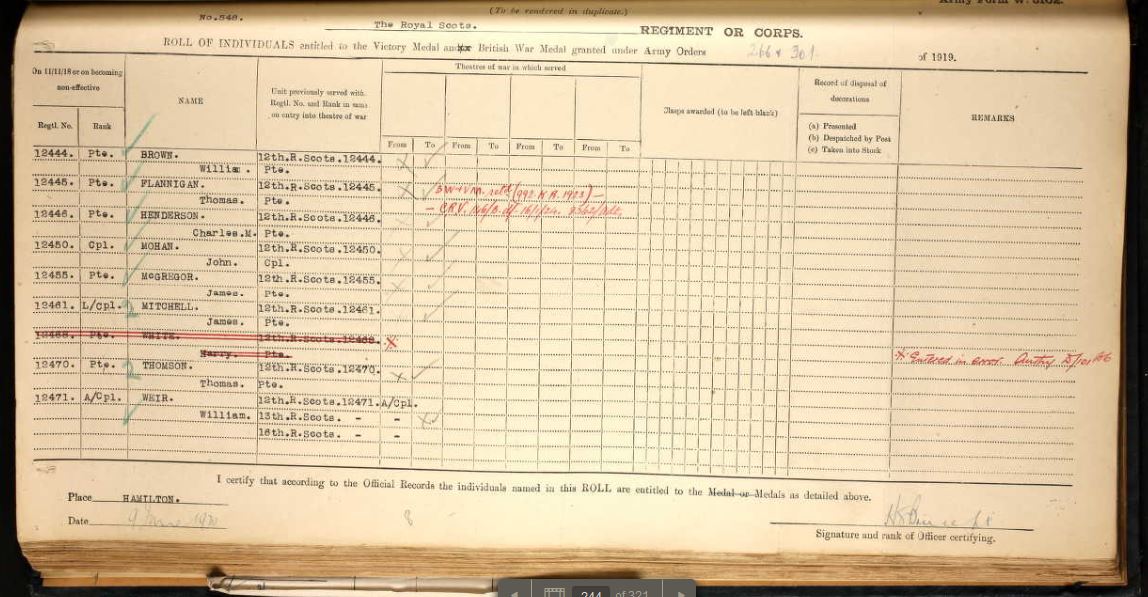 Army Form W. 5102.
(To be rendered in duplicate.)
No.548.
The Royal Scots. REGIMENT OR CORPS.
ROLL OF INDIVIDUALS entitled to the Victory Medal and British War Medal granted under Army Orders 266 & 301 of 1919.
On 11/11/18 or on becoming non-effective
Regtl. No. Rank
NAME
Unit previously served with Regtl. No. and Rank in same on entry into theatre of war
Theatres of war in which served
From To From To From To From To
Clasps awarded (to be left blank)
Record of disposal of decorations
(a) Presented
(b) Despatched by Post
(c) Taken into Stock
REMARKS
12444. Pte. BROWN. 12th.R.Scots.12444.
William. Pte.
12445. Pte. FLANNIGAN. 12th.R.Scots.12445. BW & VM. retd (992 K.R. 1923) –
Thomas. Pte.
12446. Pte. HENDERSON. 12th.R.Scots.12446.
Charles.M. Pte.
12450. Cpl. MOHAN. 12th.R.Scots.12450.
John. Cpl.
12455. Pte. McGREGOR. 12th.R.Scots.12455.
James. Pte.
12461. L/Cpl. MITCHELL. 12th.R.Scots.12461.
James. Pte.
12468. Pte. WHITE. 12th.R.Scots.12468. X
Harry. Pte. X Entered in error. Authy
12470. Pte. THOMSON. 12th.R.Scots.12470.
Thomas. Pte.
12471. A/Cpl. WEIR. 12th.R.Scots.12471.A/Cpl.
William. 13th.R.Scots. - -
16th.R.Scots. - -
I certify that according to the Official Records the individuals named in this ROLL are entitled to the Medal or Medals as detailed above.
Place HAMILTON.
Date 9 June 1920
8
Signature and rank of Officer certifying.
244 of 321